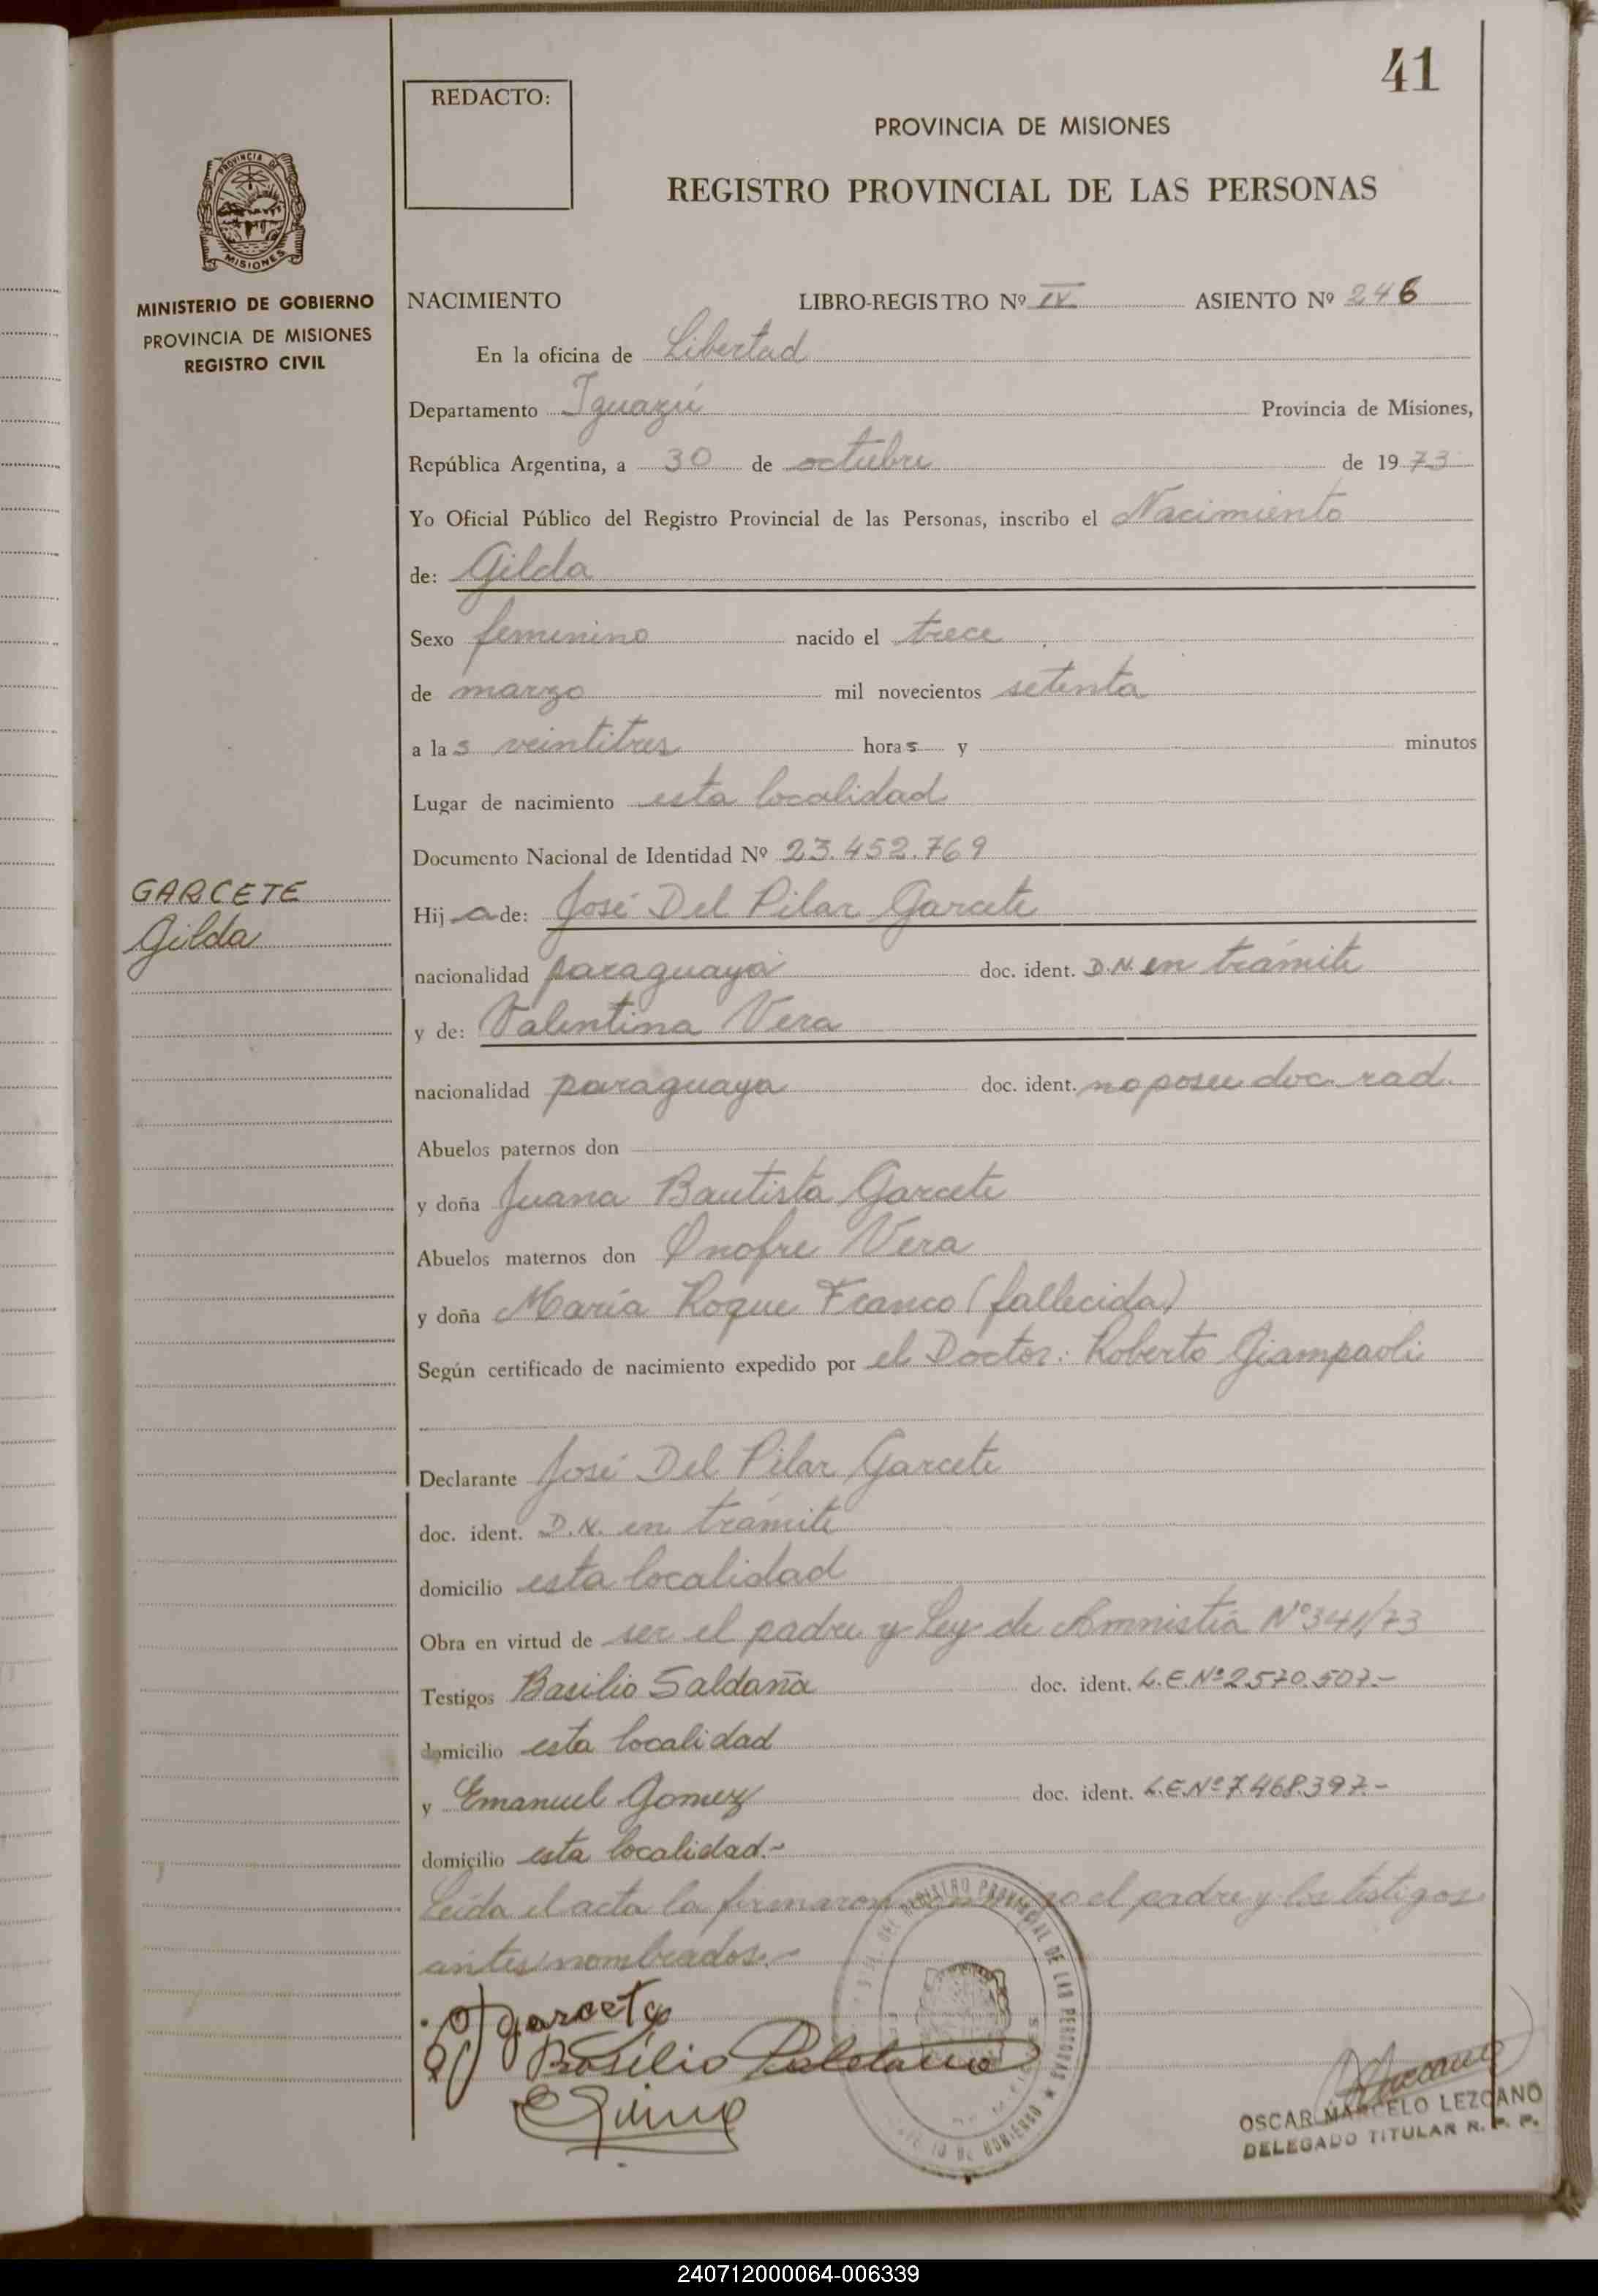 41
REDACTO:
PROVINCIA DE MISIONES
REGISTRO PROVINCIAL DE LAS PERSONAS
PROVINCIA DE
MISIONES
MINISTERIO DE GOBIERNO
PROVINCIA DE MISIONES
REGISTRO CIVIL
NACIMIENTO LIBRO-REGISTRO Nº IV ASIENTO Nº 246
En la oficina de Libertad
Departamento Iguazú Provincia de Misiones,
República Argentina, a 30 de octubre de 1973
Yo Oficial Público del Registro Provincial de las Personas, inscribo el Nacimiento
de: Gilda
Sexo femenino nacido el trece
de marzo mil novecientos setenta
a las veintitres horas y minutos
Lugar de nacimiento esta localidad
Documento Nacional de Identidad Nº 23.452.769
GARCETE
Gilda
Hija de: José Del Pilar Garcete
nacionalidad paraguaya doc. ident. D.N. en trámite
y de: Valentina Vera
nacionalidad paraguaya doc. ident. no posee doc. rad.
Abuelos paternos don
y doña Juana Bautista Garcete
Abuelos maternos don Onofre Vera
y doña María Roque Franco (fallecida)
Según certificado de nacimiento expedido por el Doctor: Roberto Giampaoli
Declarante José Del Pilar Garcete
doc. ident. D.N. en trámite
domicilio esta localidad
Obra en virtud de ser el padre y Ley de Amnistía Nº 341/73
Testigos Basilio Saldaña doc. ident. L.E.Nº 2570.507.-
domicilio esta localidad
y Emanuel Gomez doc. ident. L.E.Nº 7.468.397.-
domicilio esta localidad.-
Leída el acta la firmaron conmigo el padre y los testigos
antes nombrados.-
Garcete
Basilio
REGISTRO PROVINCIAL DE LAS PERSONAS
OSCAR MARCELO LEZCANO
DELEGADO TITULAR R. P. P.
240712000064-006339